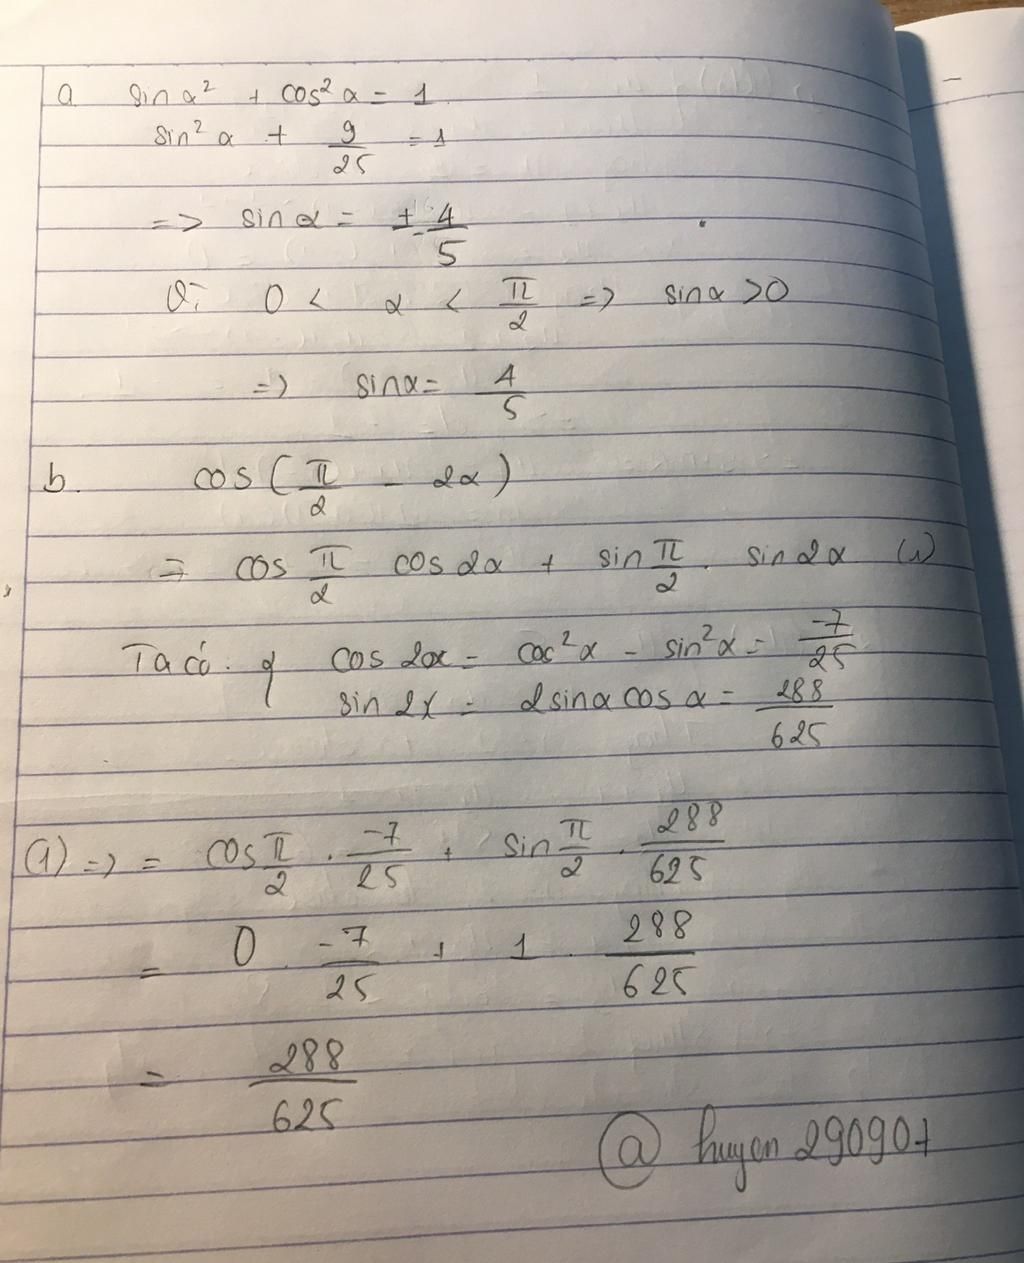 a sin α² + cos² α = 1
sin² α + 9/25 = 1
=> sin α = ± 4/5
Vì 0 < α < π/2 => sin α > 0
=> sin α = 4/5
b. cos (π/2 - 2α)
= cos π/2 cos 2α + sin π/2 . sin 2α (1)
Ta có: { cos 2α = cos² α - sin² α = -7/25
sin 2α = 2 sin α cos α = 288/625
(1) => = cos π/2 . -7/25 + sin π/2 . 288/625
= 0 . -7/25 + 1 . 288/625
= 288/625
@ huyen 290907